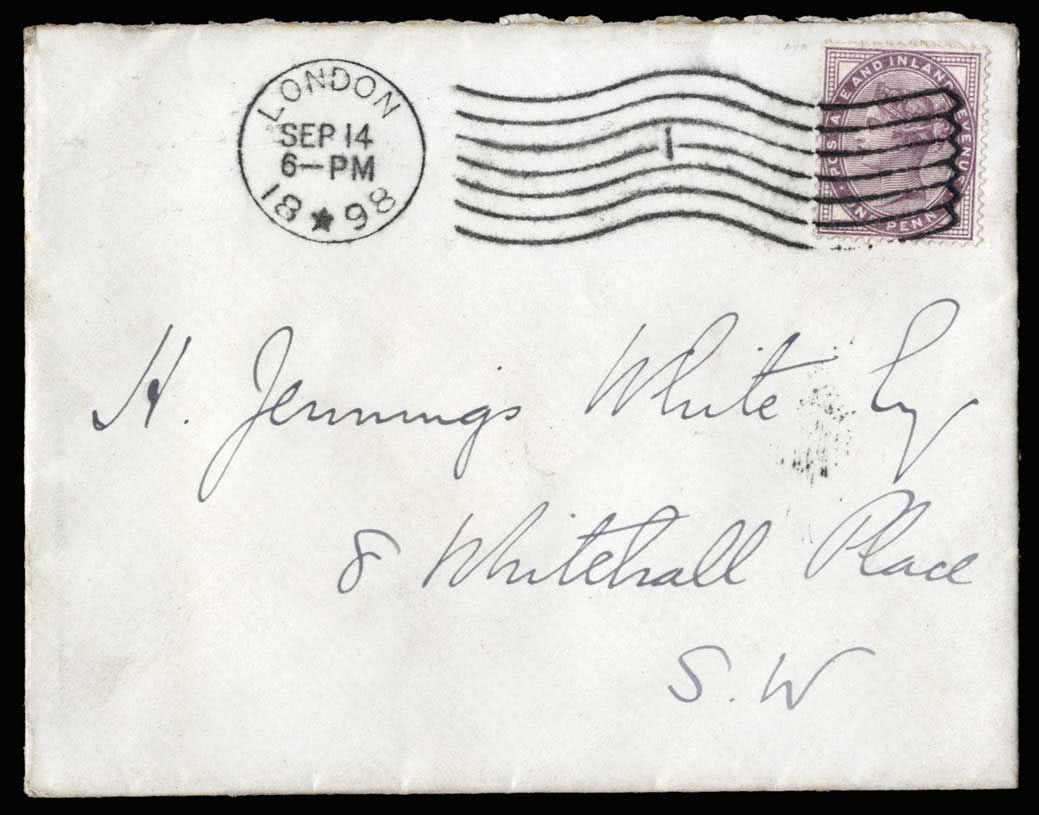 LONDON
SEP 14
6-PM
18 ★ 98
1
POSTAGE AND INLAND REVENUE
ONE PENNY
H. Jennings White Esq
8 Whitehall Place
S. W